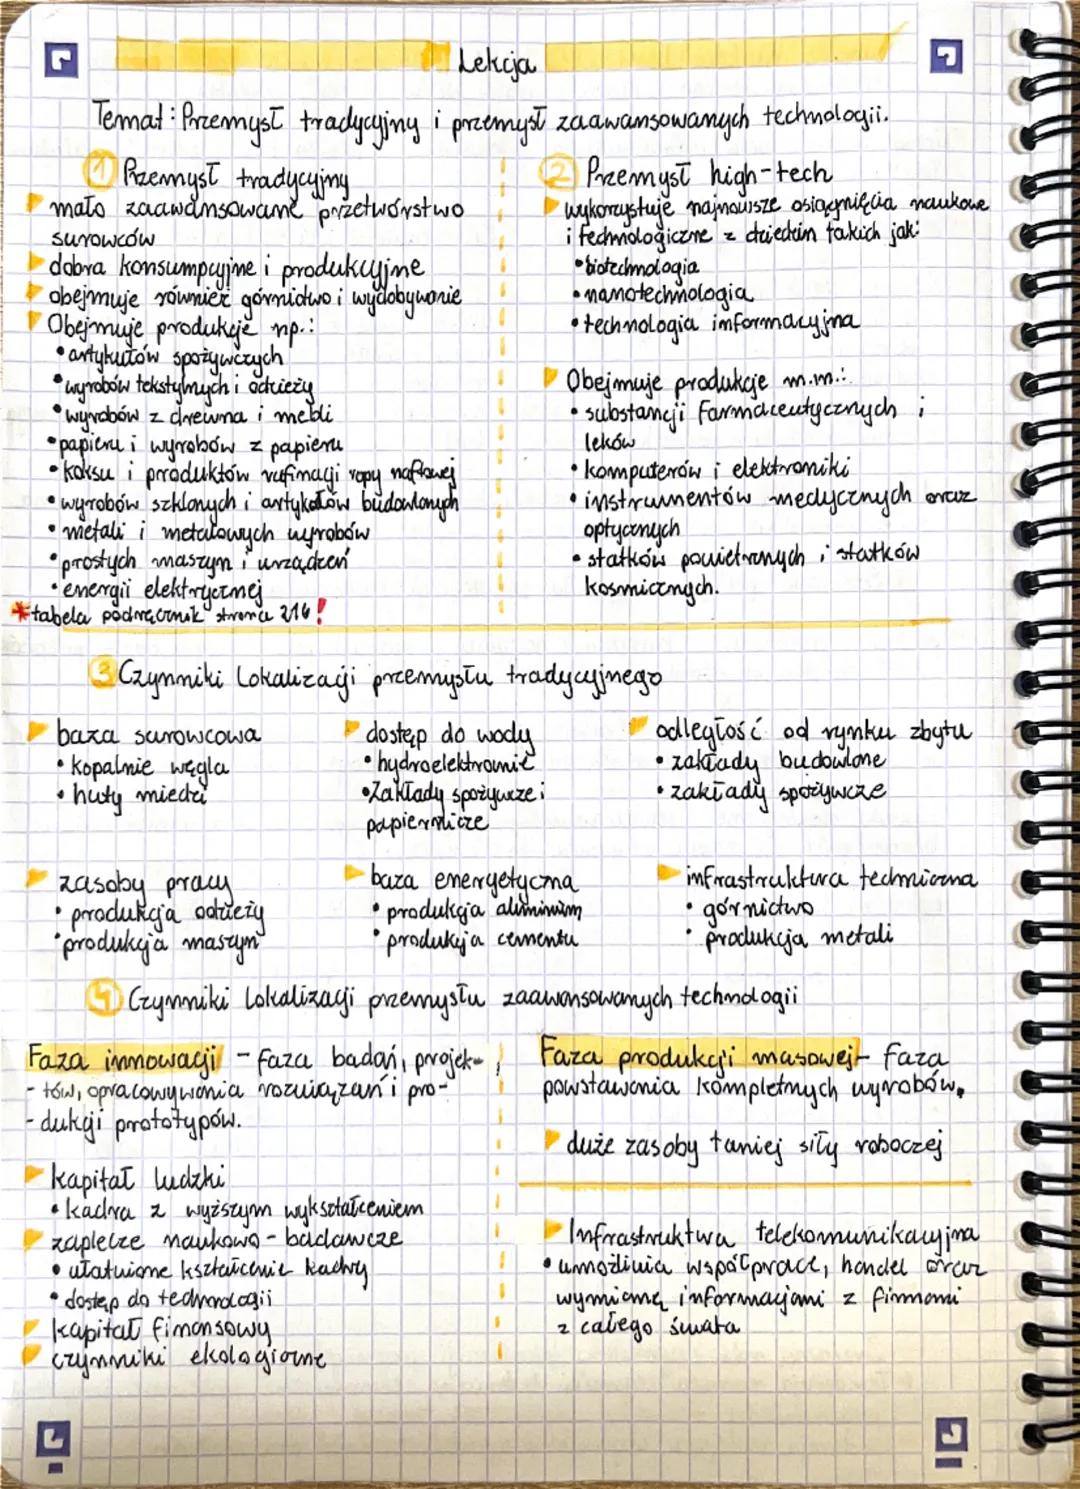 Lekcja
Temat: Przemysł tradycyjny i przemysł zaawansowanych technologii.
1 Przemysł tradycyjny
mało zaawansowane przetwórstwo
surowców
dobra konsumpcyjne i produkcyjne
obejmuje również górnictwo i wydobywanie
Obejmuje produkcje np.:
•artykułów spożywczych
•wyrobów tekstylnych i odzieży
•wyrobów z drewna i mebli
•papieru i wyrobów z papieru
•koksu i produktów rafinacji ropy naftowej
•wyrobów szklanych i artykułów budowlanych
•metali i metalowych wyrobów
•prostych maszyn i urządzeń
•energii elektrycznej
*tabela podręcznik strona 216!
2 Przemysł high-tech
wykorzystuje najnowsze osiągnięcia naukowe
i technologiczne z dziedzin takich jak:
•biotechnologia
•nanotechnologia
•technologia informacyjna
Obejmuje produkcje m.in.:
•substancji farmaceutycznych i
leków
•komputerów i elektroniki
•instrumentów medycznych oraz
optycznych
•statków powietrznych i statków
kosmicznych.
3 Czynniki lokalizacji przemysłu tradycyjnego
baza surowcowa
•kopalnie węgla
•huty miedzi
dostęp do wody
•hydroelektrownie
•Zakłady spożywcze i
papiernicze
odległość od rynku zbytu
•zakłady budowlane
•zakłady spożywcze
zasoby pracy
•produkcja odzieży
•produkcja maszyn
baza energetyczna
•produkcja aluminium
•produkcja cementu
infrastruktura techniczna
•górnictwo
•produkcja metali
4 Czynniki lokalizacji przemysłu zaawansowanych technologii
Faza innowacji - faza badań, projek-
-tów, opracowywania rozwiązań i pro-
-dukcji prototypów.
kapitał ludzki
•kadra z wyższym wykształceniem
zaplecze naukowo-badawcze
•ułatwione kształcenie kadry
•dostęp do technologii
kapitał finansowy
czynniki ekologiczne
Faza produkcji masowej - faza
powstawania kompletnych wyrobów.
duże zasoby taniej siły roboczej
Infrastruktura telekomunikacyjna
•umożliwia współpracę, handel oraz
wymianę informacjami z firmami
z całego świata